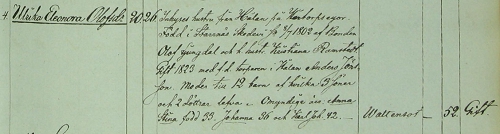 4. Ulrika Eleonora Olofsdr. 20. 26. Inhyses hustru från Hälan på Kantorpsegor.
Född i Svarvnäs Skederi på 3/7 1802 af Bonden
Olof Ljungdal och h. hust. Kristiana
Gift 1823 med f.d. torparen i Hälan Anders Jöns-
son. Moder till 12 barn af hvilka 3 söner
och 2 döttrar lefva. Omyndige äro, Anna
Stina född 33. Johanna 36 och Karl Joh. 42. Wattensot 52. Gift